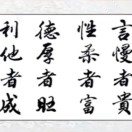 言慢者貴
性柔者富
德厚者旺
利他者成